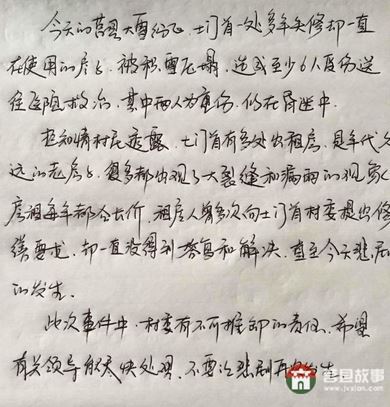 今天的莒县大雪纷飞,土门首一处多年失修却一直
在使用的房屋,被积雪压塌,造成至少6人受伤送
往医院救治,其中两人为重伤,仍在昏迷中.
据知情村民透露,土门首有多处出租房,是年代久
远的老房屋,多都出现了大裂缝和漏雨的现象
房租每年都会长价,租房人曾多次向土门首村委提出修
缮要求,却一直没得到答复和解决,直至今天悲剧
的发生.
此次事件中,村委有不可推卸的责任,希望
有关领导能尽快处理,不要让悲剧再发生.
莒县故事
www.jvxian.com